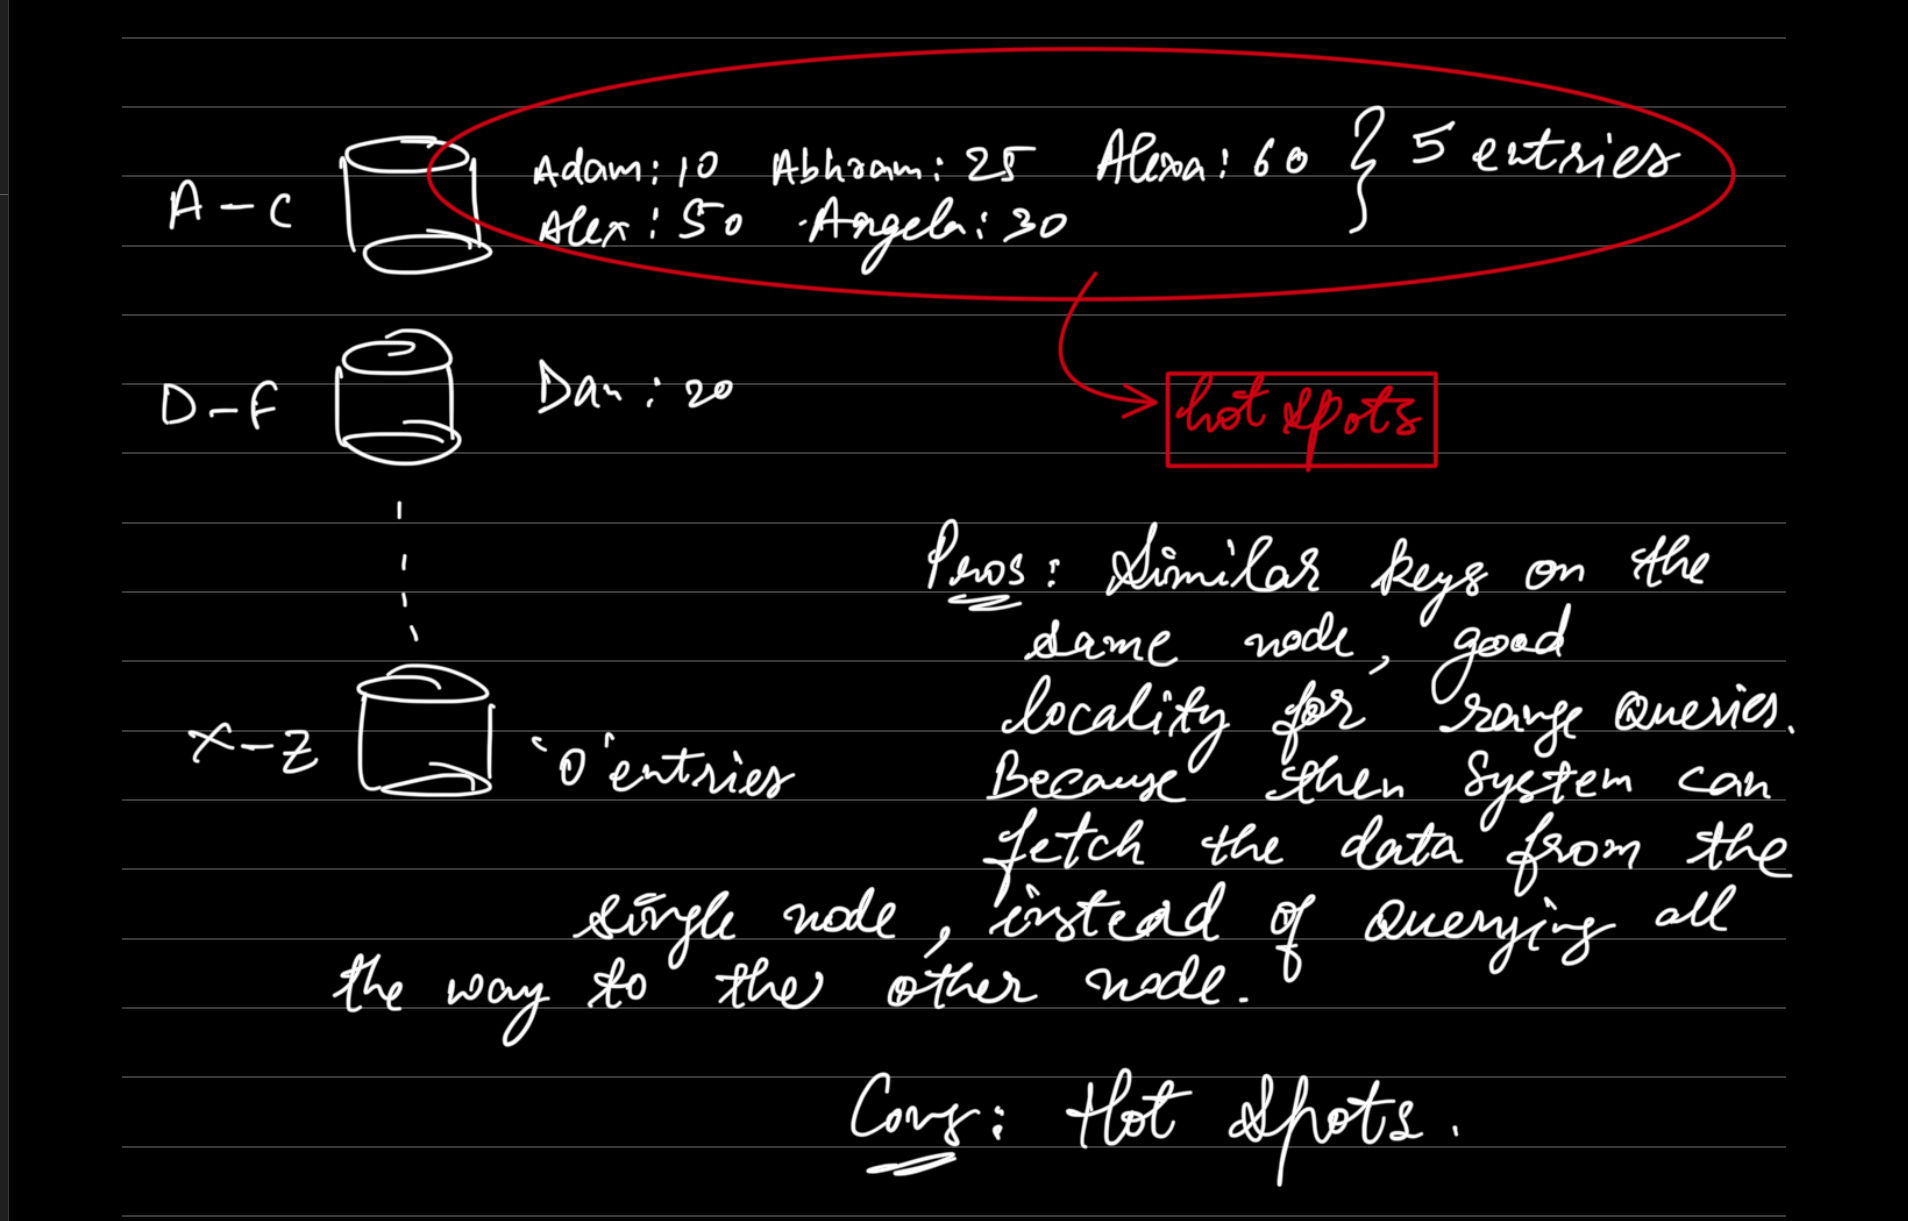 A-C
Adam: 10 Abhram: 25 Alexa: 60 } 5 entries
Alex: 50 Angela: 30
D-F
Dan: 20
hot spots
Pros: Similar keys on the
same node, good
locality for range Queries.
X-Z
"0" entries
Because then System can
fetch the data from the
single node, instead of Querying all
the way to the other node.
Cons: Hot Spots.